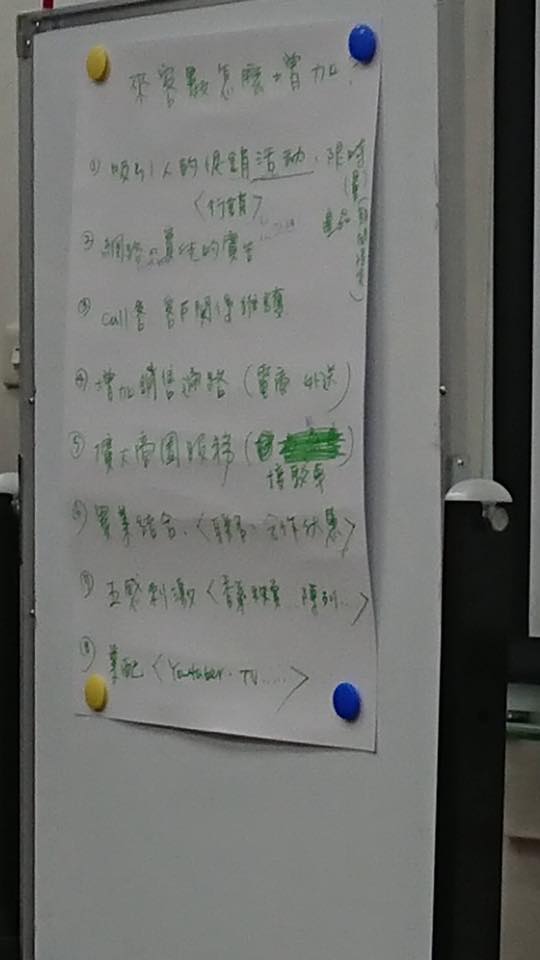 來客數怎麼增加?
① 吸引人的促銷活動、限時
(量)
<行銷>
產品
② 網路、的廣告
③ call 客 客戶關係維護
④ 增加銷售通路 (電商 外送)
⑤ 擴大商圈服務 ( )
接駁車
⑥ 異業結合、<聯名、合作優惠>
⑦ 五感刺激 < 陳列...>
⑧ 業配 <Youtuber、TV......>